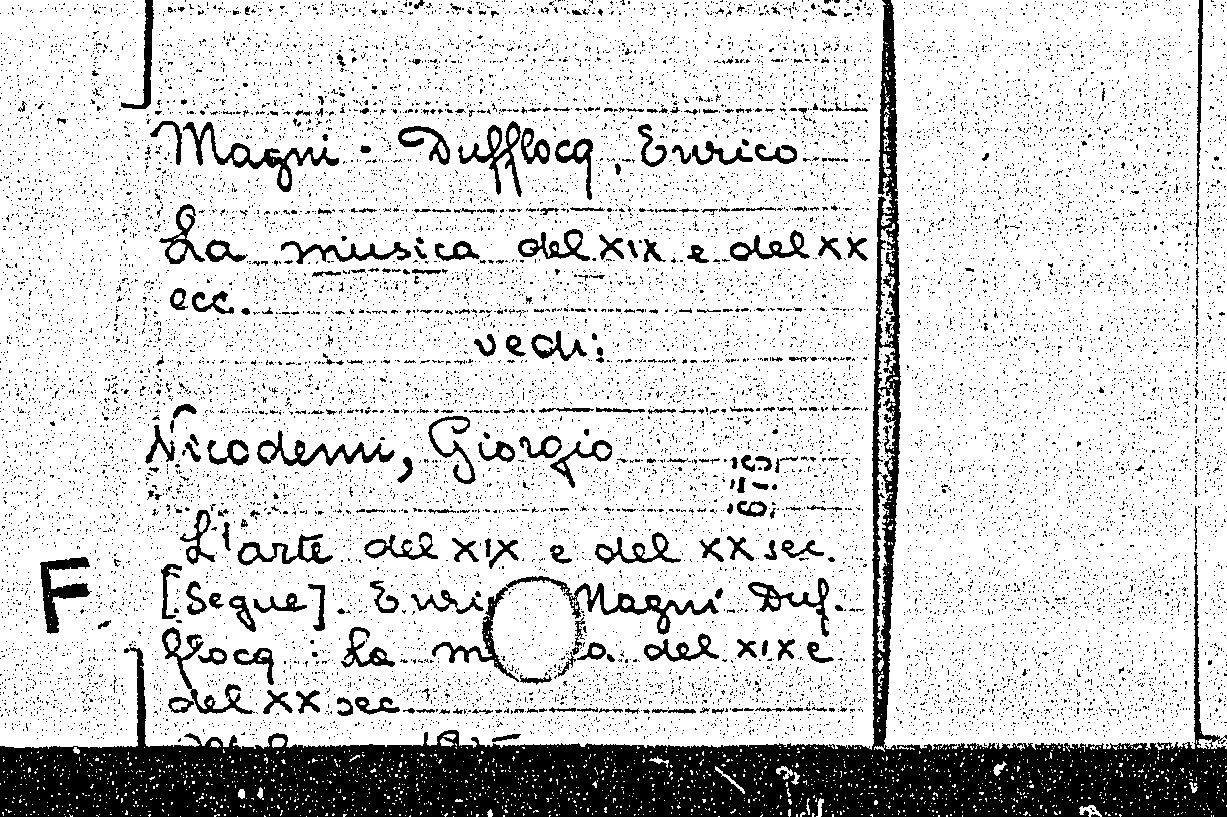 Magni - Dufflocq, Enrico
La musica del XIX e del XX
ecc.
vedi:
Nicodemi, Giorgio
L'arte del XIX e del XX sec.
[Segue]. Enri Magni Duf.
flocq : La m a del XIX e
del XX sec
F